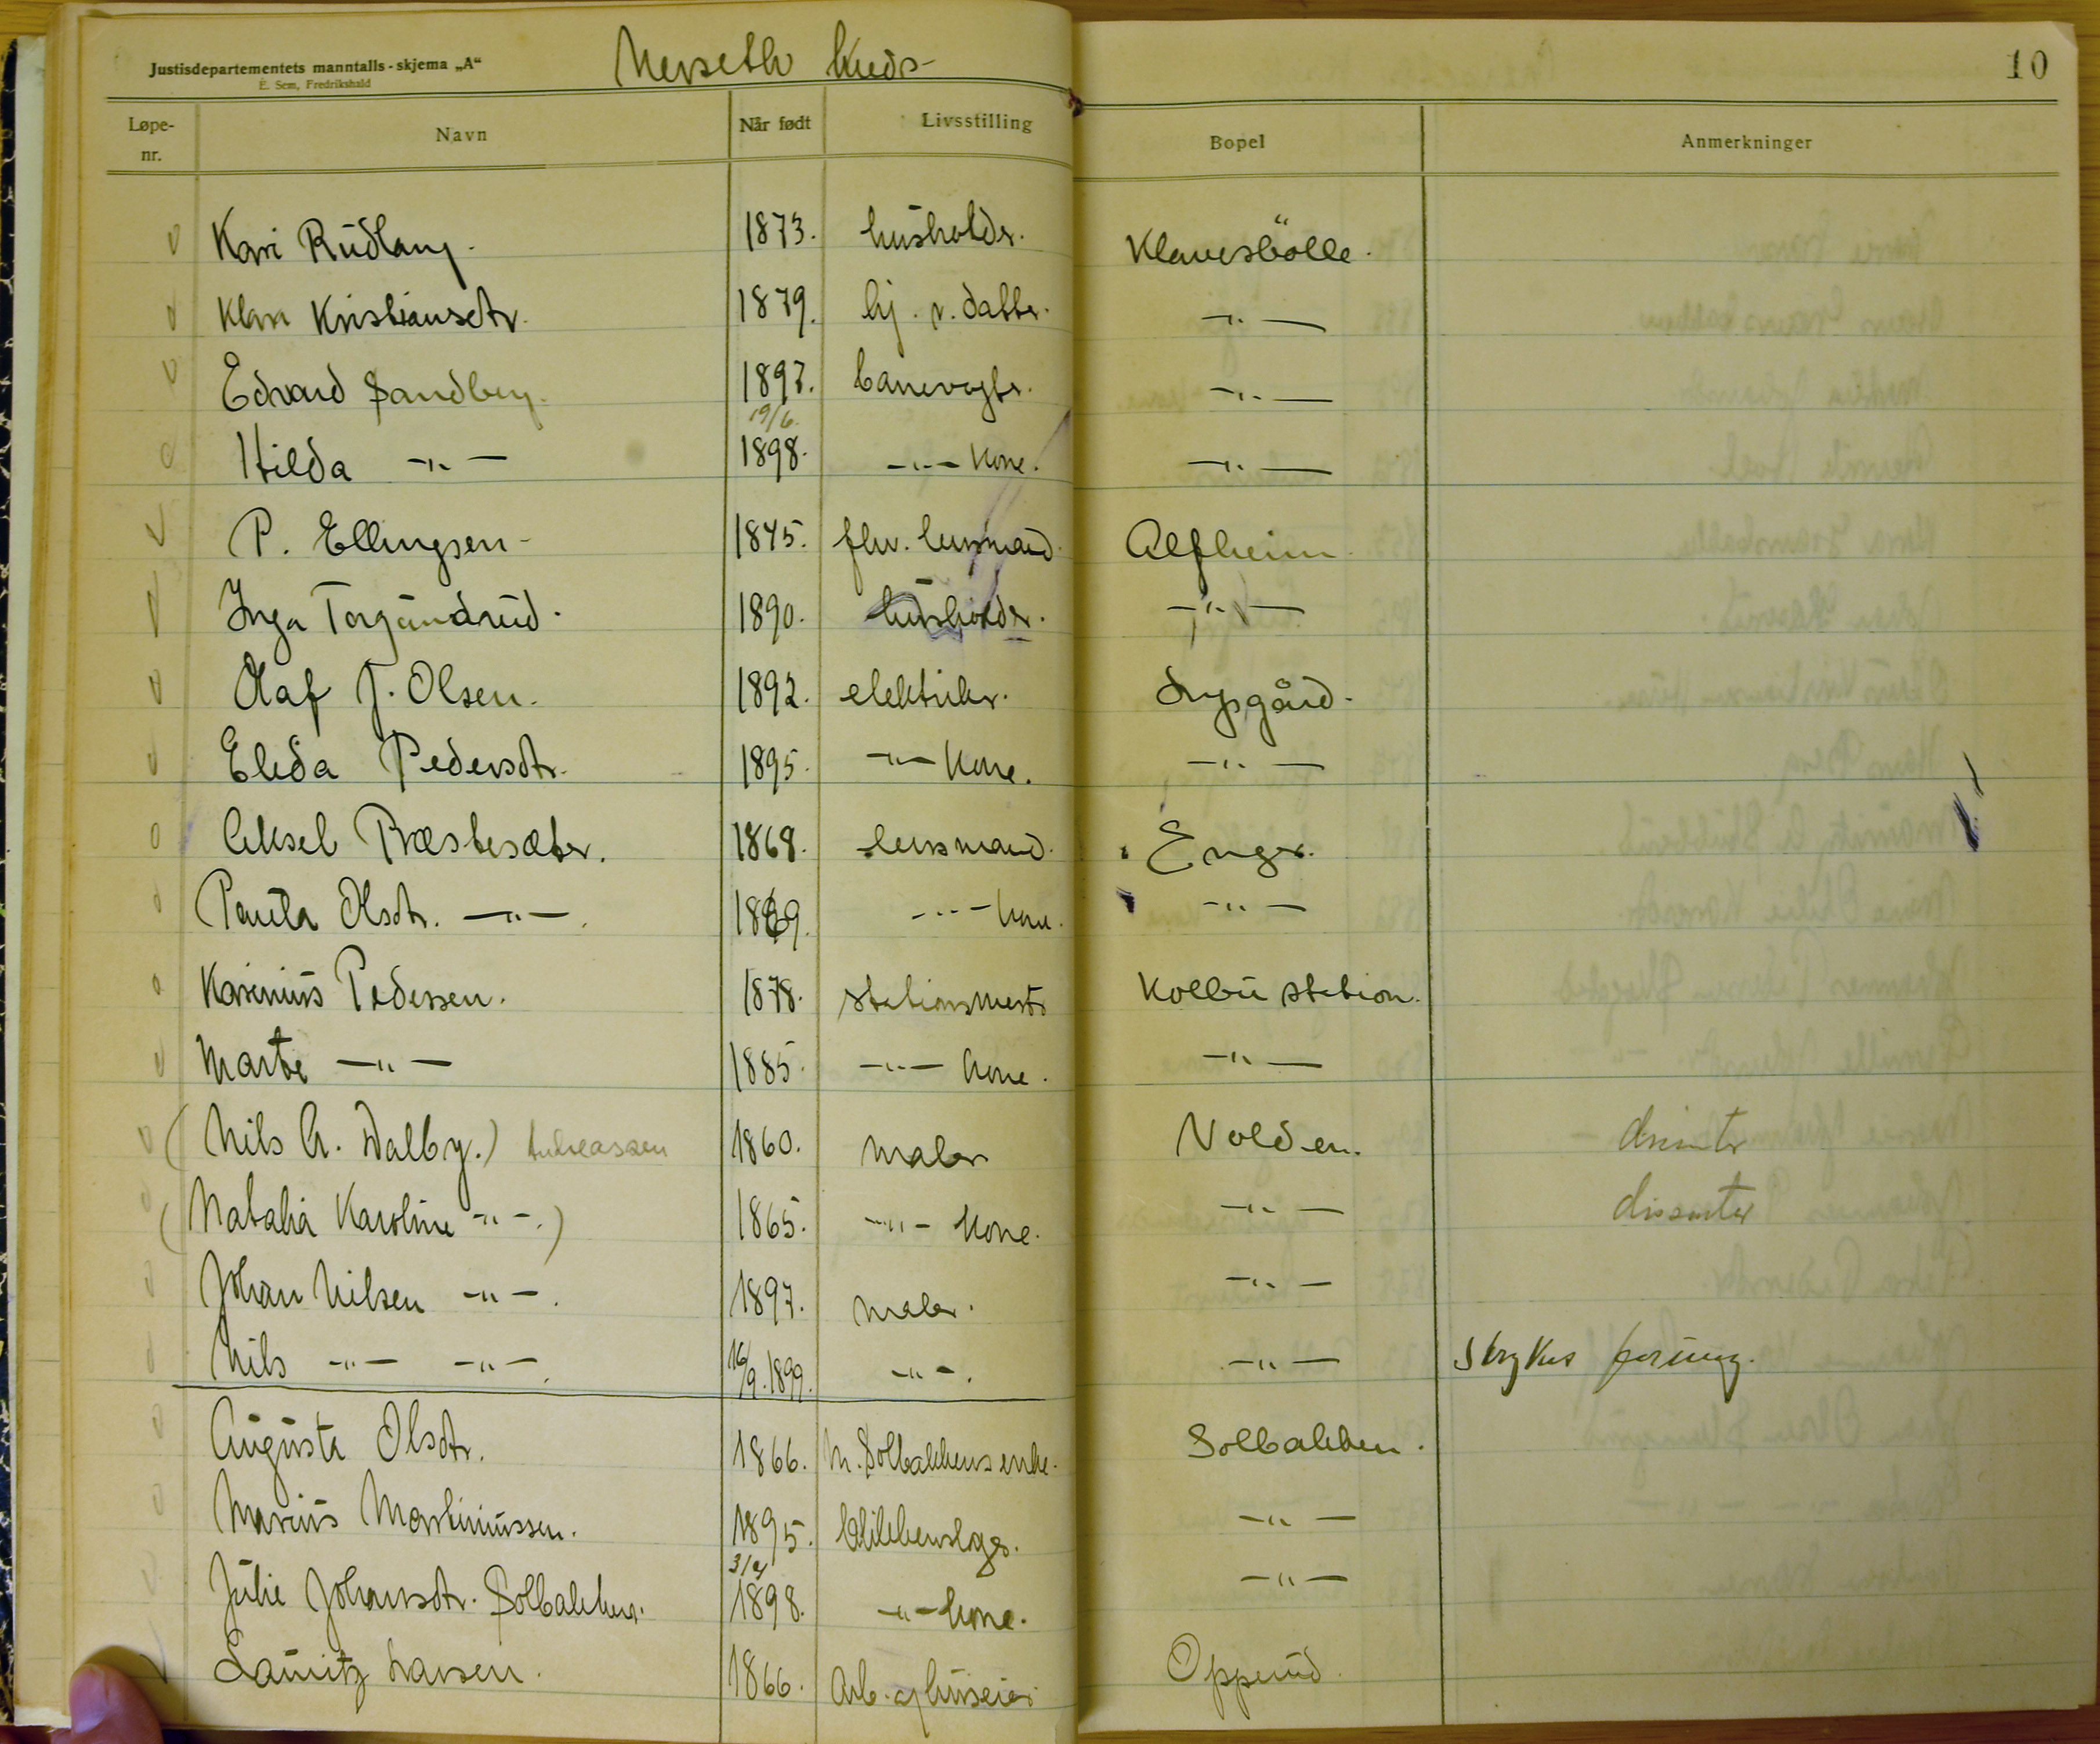 Justisdepartementets manntalls-skjema „A“
E. Sem, Fredrikshald
Nerseth kreds
10
Løpe-nr. Navn Når født Livsstilling Bopel Anmerkninger
Kari Rudlang. 1873. husholder. Klavesbölle.
Klara Kristiansdtr. 1879. hj. v. datter. -"-
Edvard Sandberg. 1897. banevogtr. -"-
19/6
Hilda -"- 1898. -"- kone. -"-
P. Ellingsen 1845. fhv. lensmand. Alfheim.
Inga Torgundrud. 1890. husholder. -"-
Olaf J. Olsen. 1892. elektriker. Lysgård.
Elida Pedersdtr. 1895. -"- kone. -"-
Aksel Præstesæter. 1868. lensmand. Enger.
Paula Olsdtr. -"-. 1869. -"- kone. -"-
Karinius Pedersen. 1878. stationsmestr Kolbu station.
Marte -"- 1885. -"- kone. -"-
(Nils A. Dalby.) Andreassen 1860. maler Volden. dissenter
(Natalia Karoline -"-.) 1865. -"- kone. -"- dissenter
Johan Nilsen -"-. 1897. maler. -"-
Nils -"- -"-. 16/9.1899. -"-. -"- Strykes for ung.
Augusta Olsdtr. 1866. M. Solbakkens enke. Solbakken.
Marius Martiniussen. 1895. blikkenslager. -"-
3/4
Julie Johansdtr. Solbakken. 1898. -"- kone. -"-
Lauritz Larsen. 1866. Arb. og huseier Opperud.